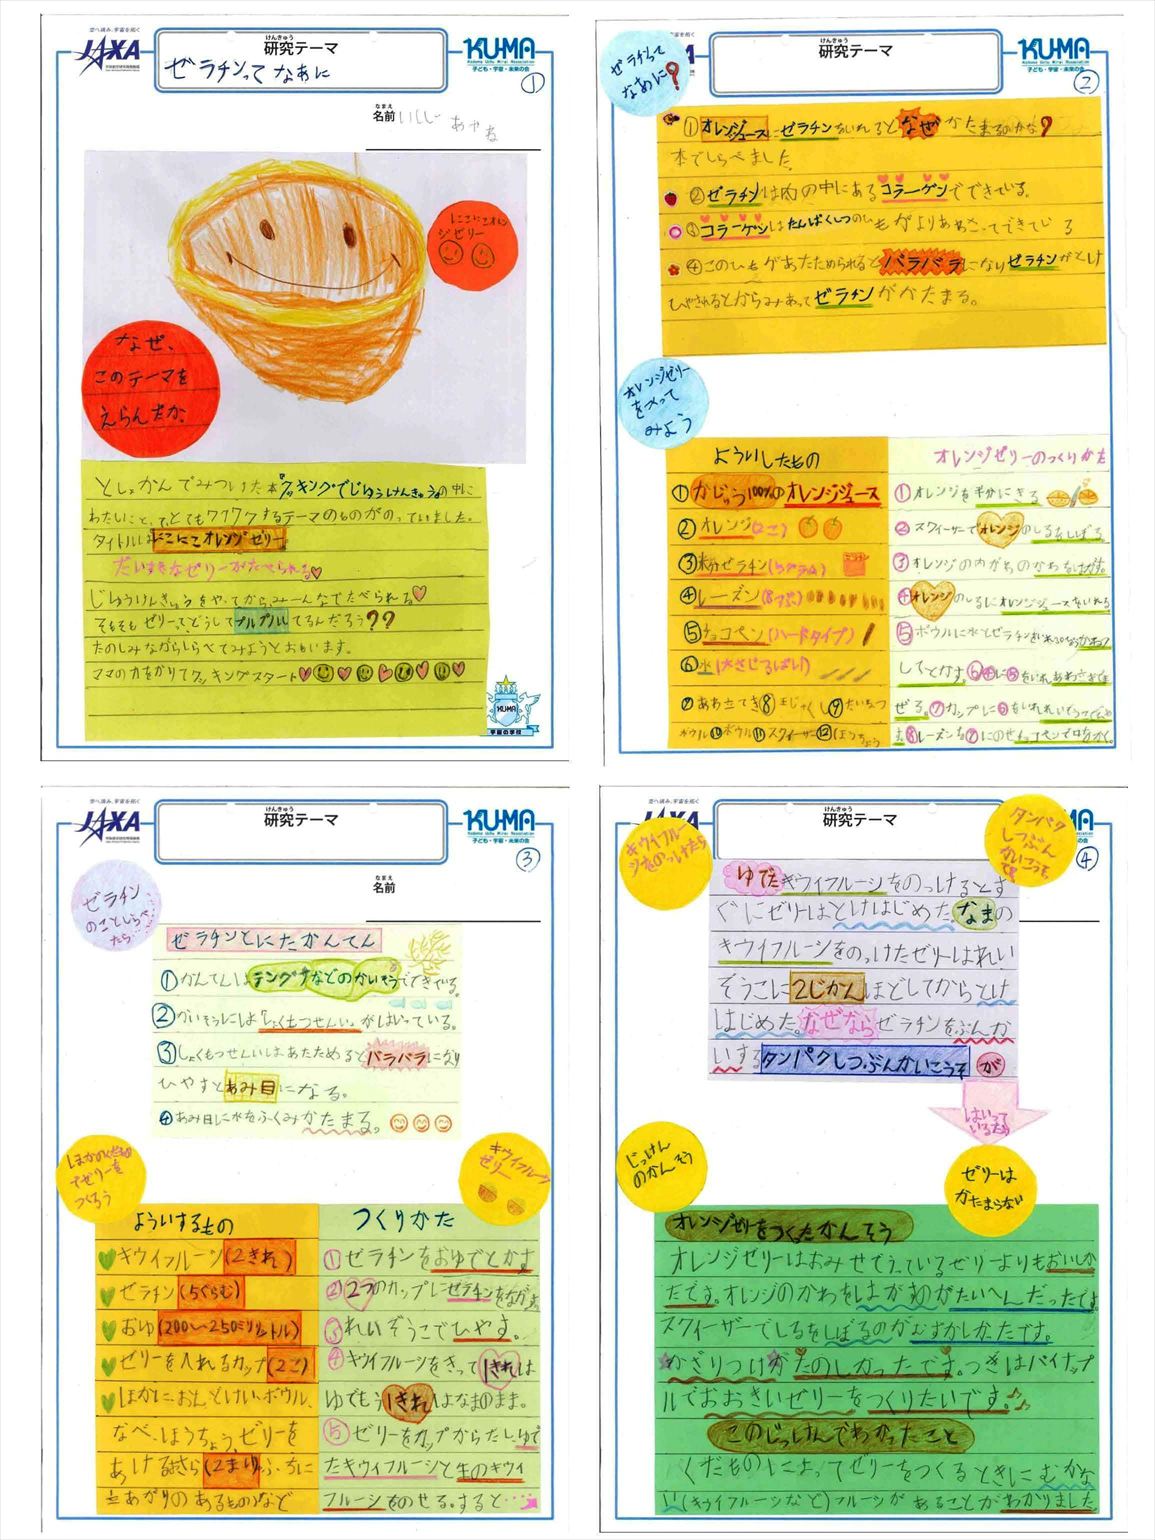 空へ挑み、宇宙を拓く
JAXA
けんきゅう
研究テーマ
ゼラチンって なあに
KU-MA
子ども・宇宙・未来の会
①
なまえ
名前
にこにこオレン
ジゼリー
なぜ、
このテーマを
えらんだか。
としょかんでみつけた本『クッキングでじゆうけんきゅう』の中に
わたいこと、ってとてもワクワクするテーマのものがのっていました。
タイトルはにこにこオレンジゼリー
だいすきなゼリーがたべられる♡
じゆうけんきゅうをやってから、みーんなでたべられる♡
そもそもゼリーって、どうしてプルプルしてるんだろう??
たのしみながらしらべてみようとおもいます。
ママの力をかりてクッキングスタート
KU-MA
宇宙の学校
けんきゅう
研究テーマ
KU-MA
子ども・宇宙・未来の会
②
ゼラチンって
なあに?
①オレンジジュースにゼラチンをいれるとなぜかたまるのかな?
本でしらべました
②ゼラチンは肉の中にあるコラーゲンでできている。
③コラーゲンはたんぱくしつのひもが よりあわさってできている
④このひもがあたためられるとバラバラになりゼラチンがとけ
ひやされるとからみあってゼラチンがかたまる。
オレンジゼリー
をつくって
みよう
よういしたもの
①かじゅう100%のオレンジジュース
②オレンジ(2こ)
③粉ゼラチン(5グラム)
④レーズン(8つぶ)
⑤チョコペン(ハードタイプ)
⑥水(大さじ3ばい)
⑦あわ立てき⑧まじゃくし⑨たいねつ
ボウル⑩ボウル⑪スクイーザー⑫ほうちょう
オレンジゼリーのつくりかた
①オレンジを半分にきる
②スクイーザーでオレンジのしるをしぼる
③オレンジの内がわのかわをはがす。
④オレンジのしるにオレンジジュースをいれる
⑤ボウルに水とゼラチンを
してとかす。⑥④に⑤をいれあわ立てきでま
ぜる。⑦カップに⑥をいれれいぞうこで
す⑧レーズンを⑦にのせチョコペンで口をかく。
空へ挑み、宇宙を拓く
JAXA
けんきゅう
研究テーマ
KU-MA
子ども・宇宙・未来の会
③
なまえ
名前
ゼラチン
のことしらべ
たら…
ゼラチンとにたかんてん
①かんてんはテングサなどのかいそうでできてる。
②かいそうには「しょくもつせんい」がはいっている。
③しょくもつせんいはあたためるとバラバラになり
ひやすとあみ目になる。
④あみ目に水をふくみかたまる。
ほかのくだもの
でゼリーを
つくろう
キウイフルーツ
ゼリー
よういするもの
キウイフルーツ(2きれ)
ゼラチン(5ぐらむ)
おゆ(200〜250ミリリットル)
ゼリーを入れるカップ(2こ)
ほかに、おんどけい、ボウル、
なべ、ほうちょう、ゼリーを
あけるさら(2まい)、ふちに
立あがりのあるもの)など
つくりかた
①ゼラチンをおゆでとかす
②2つのカップにゼラチンをながす
③れいぞうこでひやす。
④キウイフルーツをきって1きれは
ゆでもう1きれはなまのまま。
⑤ゼリーをカップからだし、ゆで
たキウイフルーツと生のキウイ
フルーツをのせる。すると…
空へ挑み、宇宙を拓く
JAXA
けんきゅう
研究テーマ
KU-MA
④
キウイフルー
ツをのっけたら
タンパク
しつぶん
かいこうそ
ゆでたキウイフルーツをのっけるとす
ぐにゼリーはとけはじめた。なまの
キウイフルーツをのっけたゼリーはれい
ぞうこに2じかんほどしてからとけ
はじめた。なぜならゼラチンをぶんか
いするタンパクしつぶんかいこうそが
はいって
いるから
ゼリーは
かたまらない
じっけん
のかんそう
オレンジゼリーをつくったかんそう
オレンジゼリーはおみせでうっているゼリーよりもおいしか
たです。オレンジのかわをはがすのがたいへんだったです。
スクイーザーでしるをしぼるのがむずかしかたです。
かざりつけがたのしかったです。つぎはパイナップ
ルでおおきいゼリーをつくりたいです。♫
このじっけんでわかったこと
くだものによってゼリーをつくるときにむかな
い(キウイフルーツなど)フルーツがあることがわかりました。